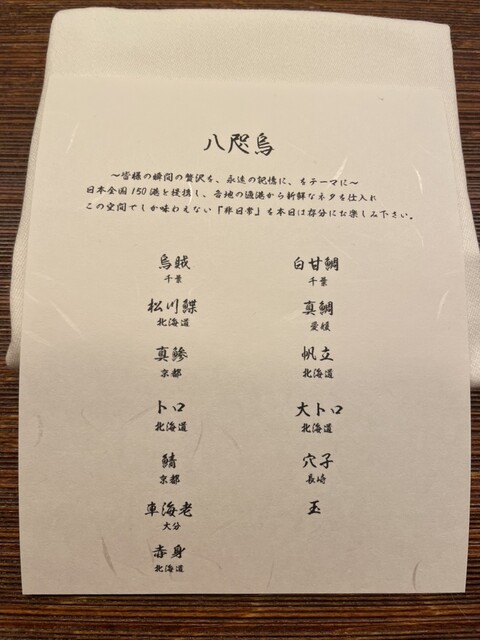 八咫烏
〜皆様の瞬間の贅沢を、永遠の記憶に、をテーマに〜
日本全国150港と提携し、各地の漁港から新鮮なネタを仕入れ
この空間でしか味わえない「非日常」を本日は存分にお楽しみ下さい。
烏賊
千葉
松川鰈
北海道
真鯵
京都
トロ
北海道
鯖
京都
車海老
大分
赤身
北海道
白甘鯛
千葉
真鯛
愛媛
帆立
北海道
大トロ
北海道
穴子
長崎
玉